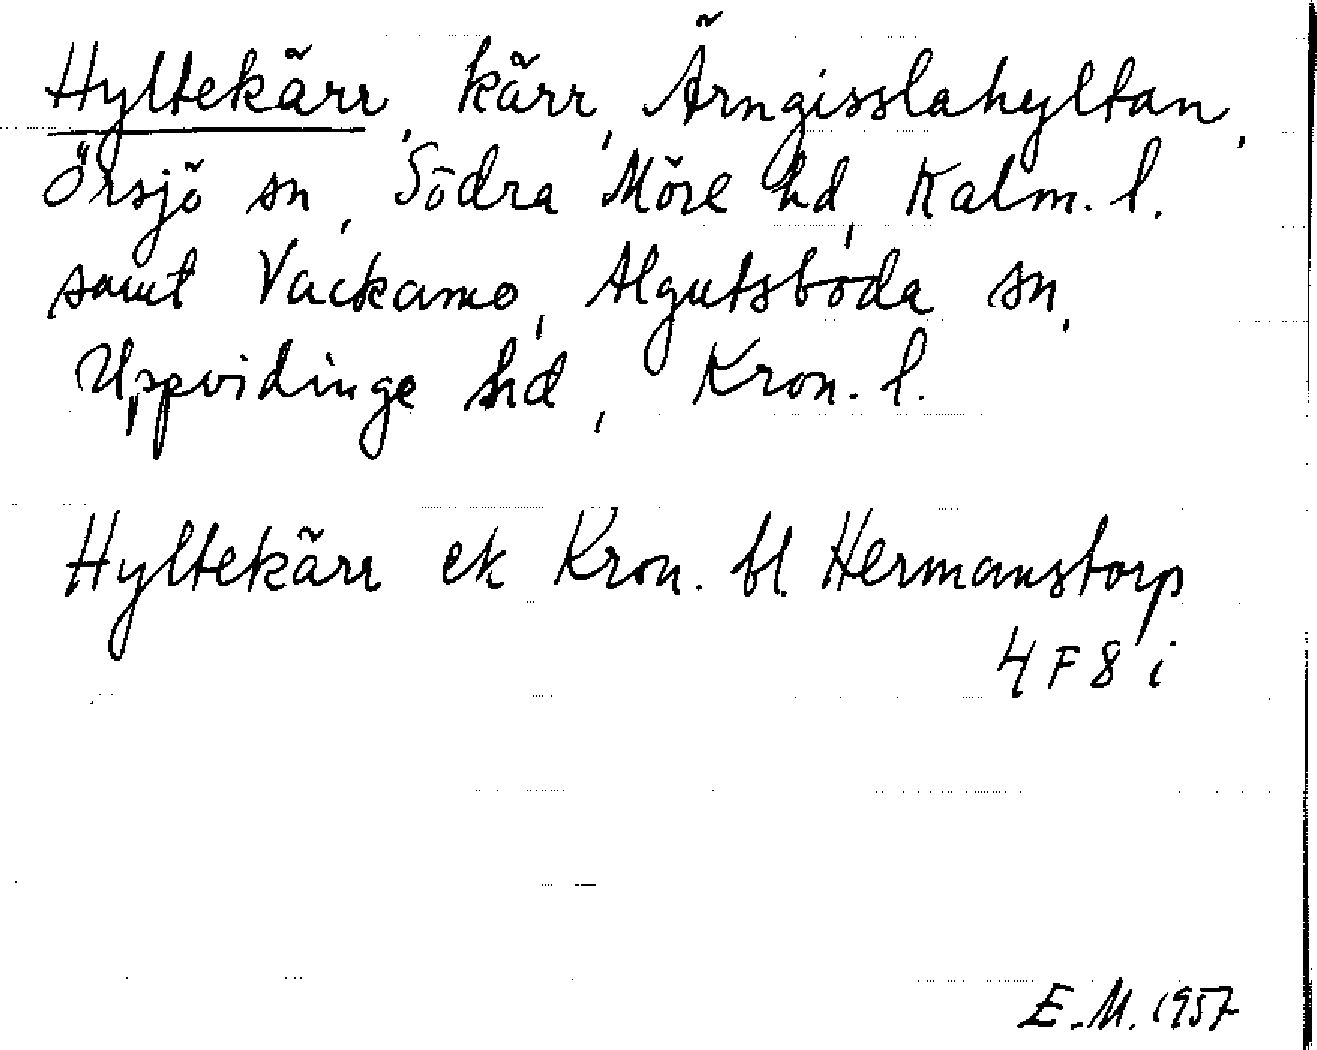 Hyltekärr, kärr, Ärngisslahyltan,
Örsjö sn, Södra Möre hd, Kalm. l.
samt Vackamo, Algutsboda sn,
Uppvidinge hd, Kron. l.
Hyltekärr ek Kron. bl. Hermanstorp
4 F 8 i
E.M. 1957